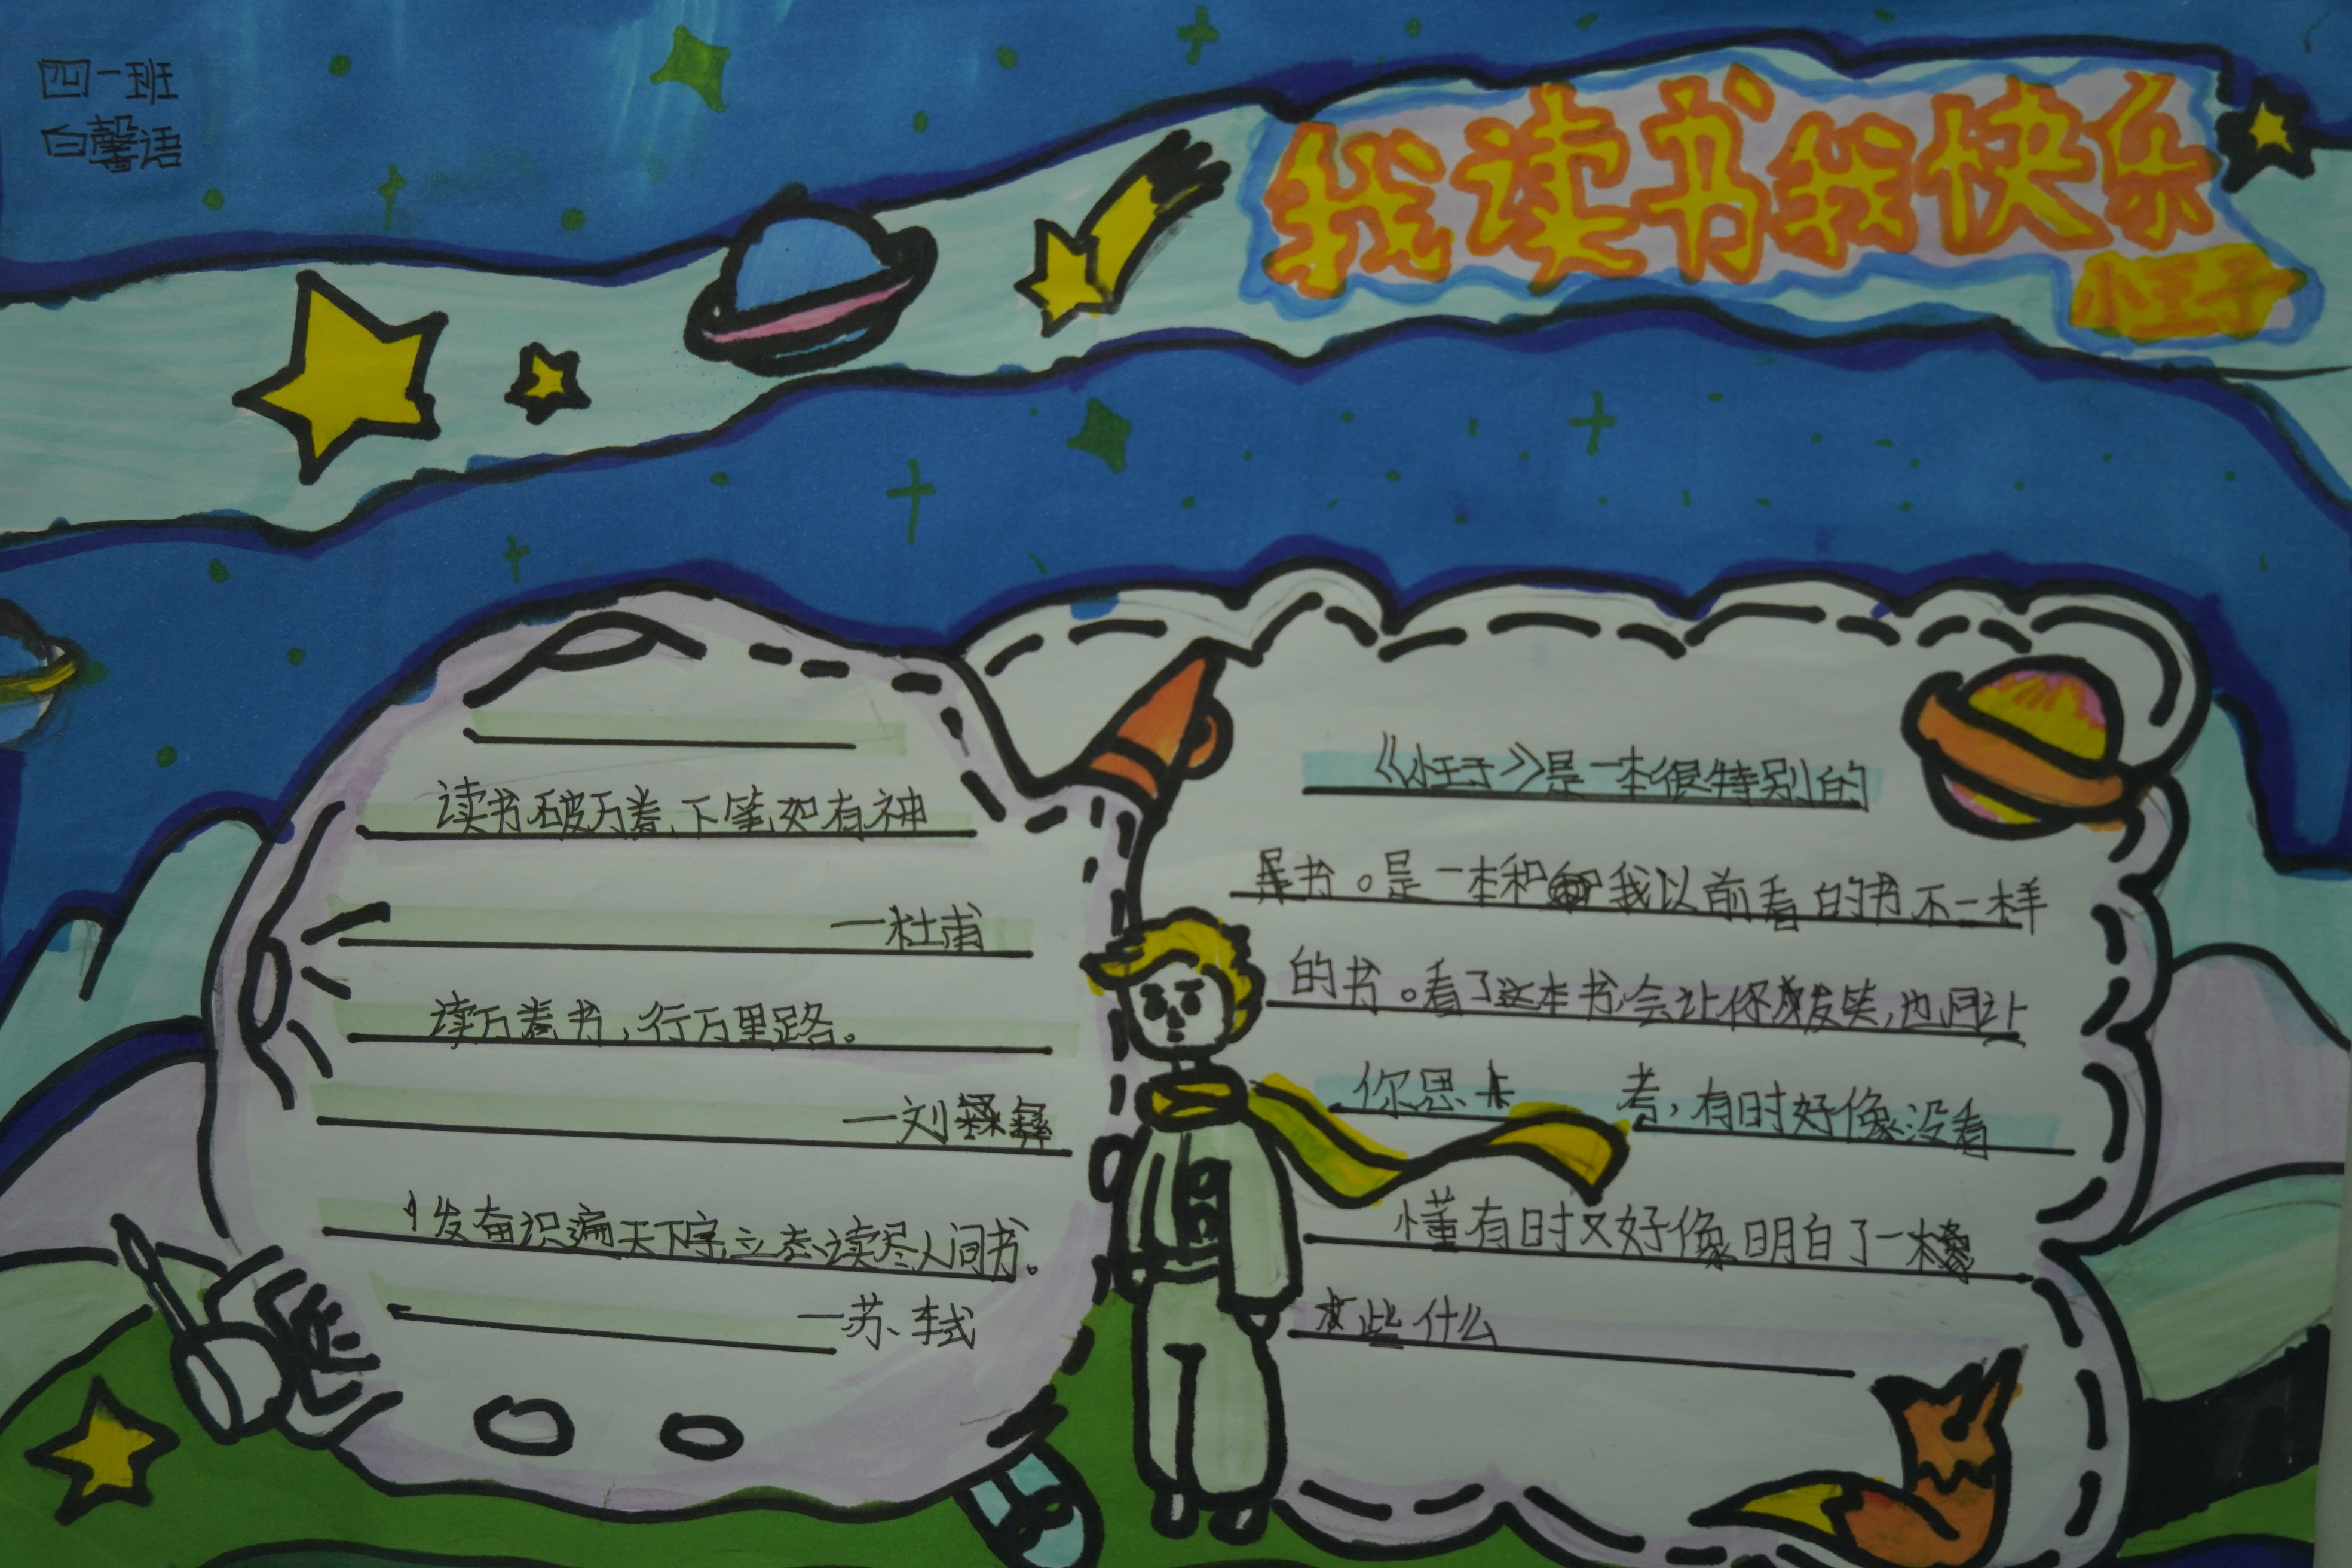 四一班
白馨语
我读书我快乐
小王子
读书破万卷,下笔如有神
一杜甫
读万卷书,行万里路。
一刘彝
发奋识遍天下字,立志读尽人间书。
一苏轼
《小王子》是一本很特别的
书。是一本和我以前看的书不一样
的书。看了这本书,会让你发笑,也同让
你思考,有时好像没看
懂有时又好像明白了一
些什么